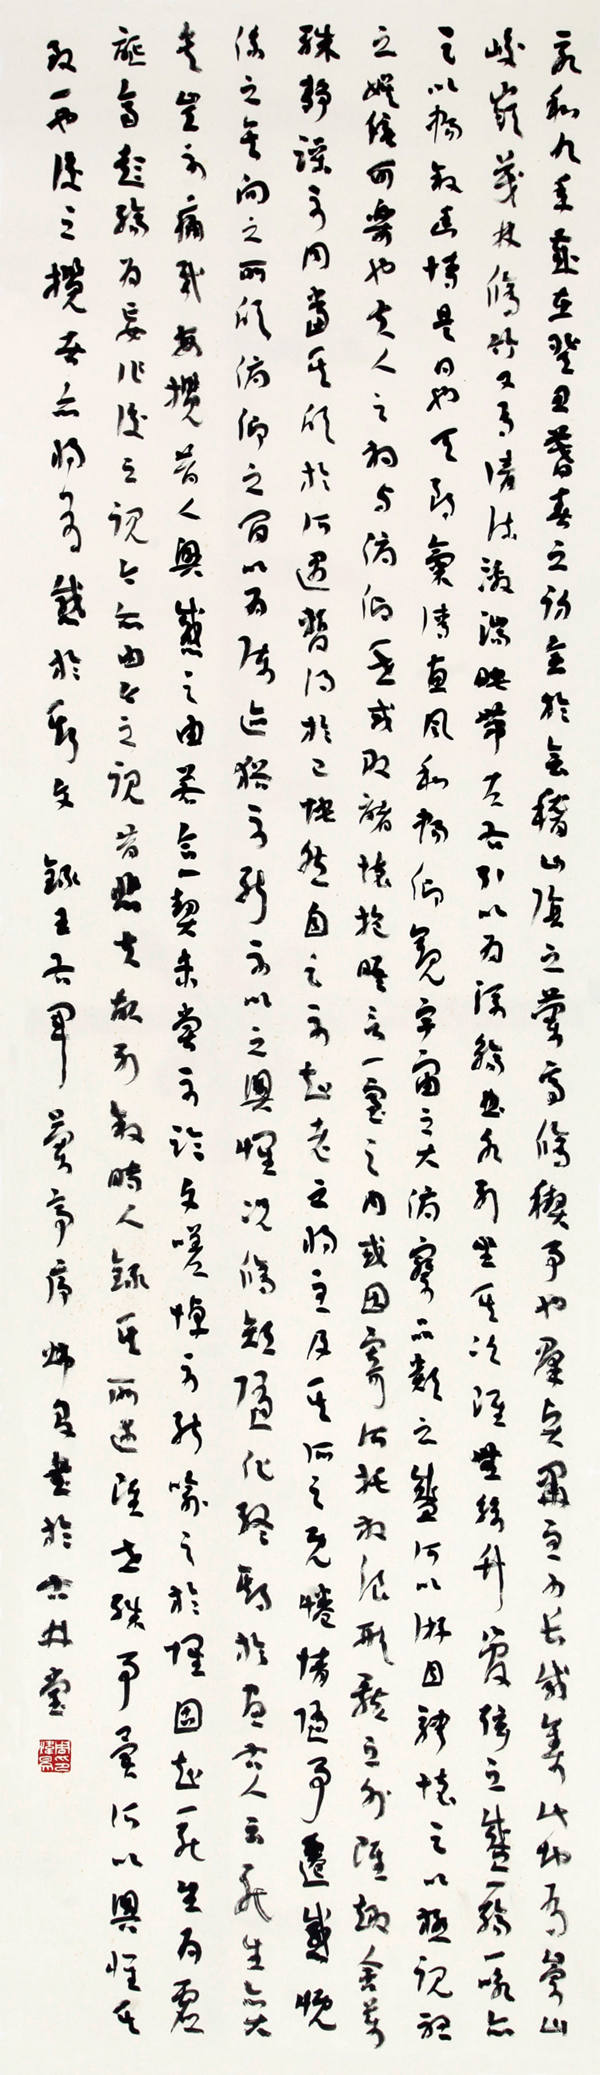 永和九年歲在癸丑暮春之初會於會稽山陰之蘭亭脩禊事也羣賢畢至少長咸集此地有崇山
峻嶺茂林脩竹又有清流激湍映帶左右引以為流觴曲水列坐其次雖無絲竹管弦之盛一觴一詠亦
足以暢敘幽情是日也天朗氣清惠風和暢仰觀宇宙之大俯察品類之盛所以遊目騁懷足以極視聽
之娛信可樂也夫人之相與俯仰一世或取諸懷抱晤言一室之內或因寄所托放浪形骸之外雖趣舍萬
殊靜躁不同當其欣於所遇暫得於己快然自足不知老之將至及其所之既倦情隨事遷感慨
係之矣向之所欣俯仰之間以為陳迹猶不能不以之興懷況脩短隨化終期於盡古人云死生亦大
矣豈不痛哉每攬昔人興感之由若合一契未嘗不臨文嗟悼不能喻之於懷固知一死生為虛
誕齊彭殤為妄作後之視今亦由今之視昔悲夫故列敘時人錄其所述雖世殊事異所以興懷其
致一也後之攬者亦將有感於斯文 錄王右軍蘭亭序 書於古林堂